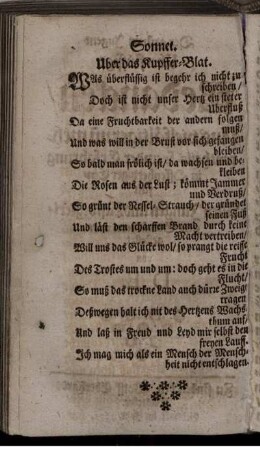 Sonnet.
Uber das Kupffer-Blat.
WAs überflüssig ist begehr ich nicht zu
schreiben/
Doch ist nicht unser Hertz ein steter
Uberfluß
Da eine Fruchtbarkeit der andern folgen
muß/
Und was will in der Brust vor sich gefangen
bleiben/
So bald man frölich ist/ da wachsen und be-
kleiben
Die Rosen aus der Lust; kömmt Jammer
und Verdruß/
So grünt der Nessel-Strauch/ der gründet
seinen Fuß
Und läst den scharffen Brand durch keine
Macht vertreiben/
Will uns das Glücke wol/ so prangt die reiffe
Frucht
Des Trostes um und um: doch geht es in die
Flucht/
So muß das trockne Land auch dürre Zweige
tragen
Deßwegen halt ich nit des Hertzens Wachs-
thum auf/
Und laß in Freud und Leyd mir selbst den
freyen Lauff.
Ich mag mich als ein Mensch der Mensch-
heit nicht entschlagen.